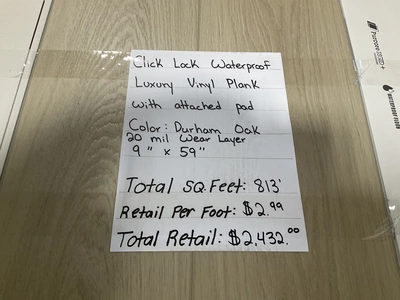 Click Lock Waterproof
Luxury Vinyl Plank
with attached pad
Color: Durham Oak
20 mil Wear Layer
9" x 59"
Total SQ. Feet: 813'
Retail Per Foot: $2.99
Total Retail: $2,432.00
WATERPROOF FLOOR